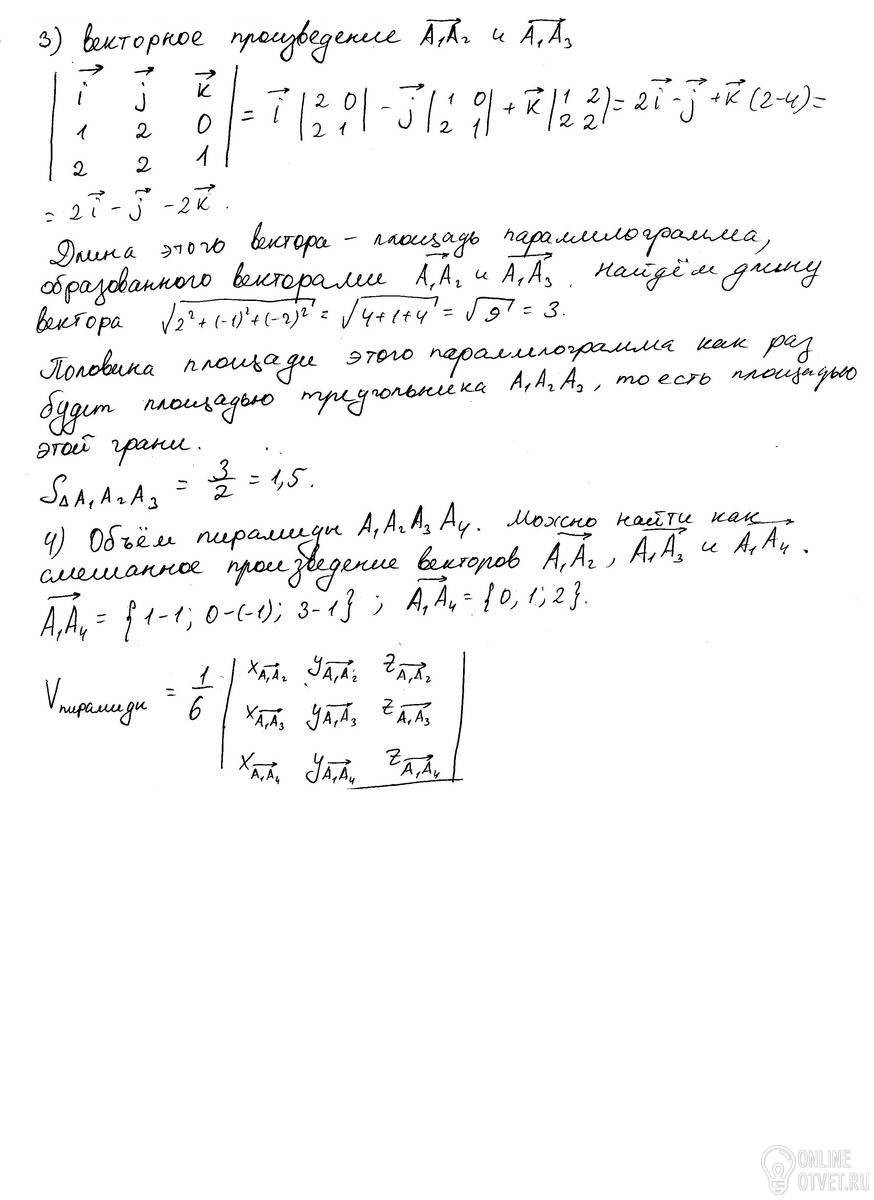 3) векторное произведение A₁A₂ и A₁A₃
| i j k |
| 1 2 0 | = i |2 0; 2 1| - j |1 0; 2 1| + k |1 2; 2 2| = 2i - j + k (2-4) =
| 2 2 1 |
= 2i - j - 2k.
Длина этого вектора – площадь параллилограмма,
образованного векторами A₁A₂ и A₁A₃. Найдём длину
вектора √(2²+(-1)²+(-2)²) = √(4+1+4) = √9 = 3.
Половина площади этого параллилограмма как раз
будет площадью треугольника A₁A₂A₃, то есть площадью
этой грани.
S△A₁A₂A₃ = 3/2 = 1,5.
4) Объём пирамиды A₁A₂A₃A₄. Можно найти как
смешанное произведение векторов A₁A₂, A₁A₃ и A₁A₄.
A₁A₄ = {1-1; 0-(-1); 3-1}; A₁A₄ = {0, 1; 2}.
Vпирамиды = 1/6 | xA₁A₂ yA₁A₂ zA₁A₂ |
| xA₁A₃ yA₁A₃ zA₁A₃ |
| xA₁A₄ yA₁A₄ zA₁A₄ |
ONLINE
OTVET.RU